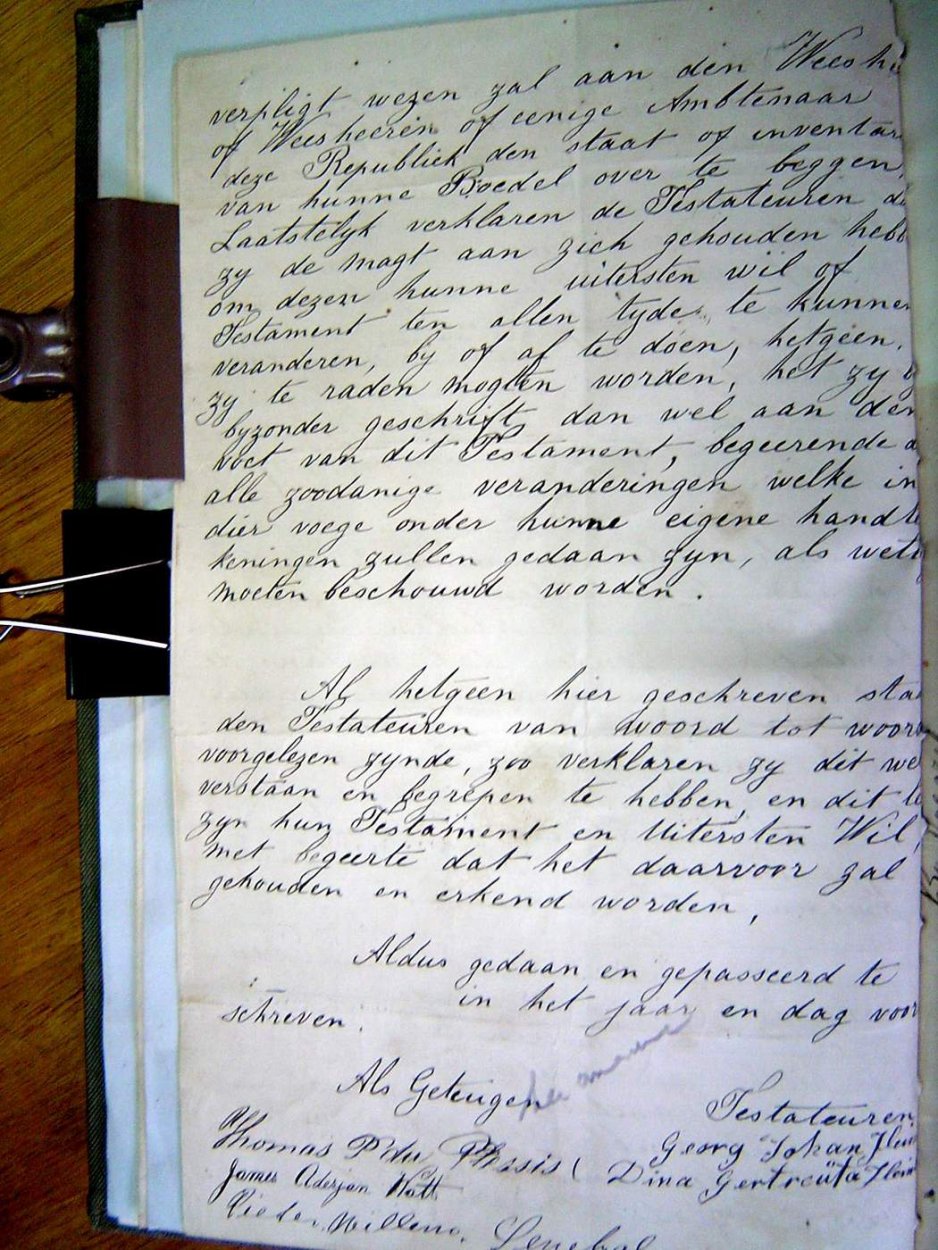 verpligt wezen zal aan den
of Weesheeren of eenige Ambtenaar
deze Republiek den staat of inventar
van hunne Boedel over te leggen,
Laatstelyk verklaren de Testateuren da
zy de magt aan zich gehouden hebb
om dezen hunne uitersten wil of
Testament ten allen tyde te kunnen
veranderen, by of af te doen, hetgeen
zy te raden mogten worden, het zy
byzonder geschrift, dan wel aan den
voet van dit Testament, begeerende
alle zoodanige veranderingen welke in
dier voege onder hunne eigene handte
keningen zullen gedaan zyn, als wett
moeten beschouwd worden.
Al hetgeen hier geschreven staa
den Testateuren van woord tot woord
voorgelezen zynde, zoo verklaren zy dit wel
verstaan en begrepen te hebben, en dit te
zyn hun Testament en Uitersten Wil,
met begeerte dat het daarvoor zal
gehouden en erkend worden,
Aldus gedaan en gepasseerd te
in het jaar en dag voor
schreven.
Als Getuigen
Testateuren
Thomas P du Plesis
Georg Johan
James Aderjan
Dina Gertreuta
Pieder Willem